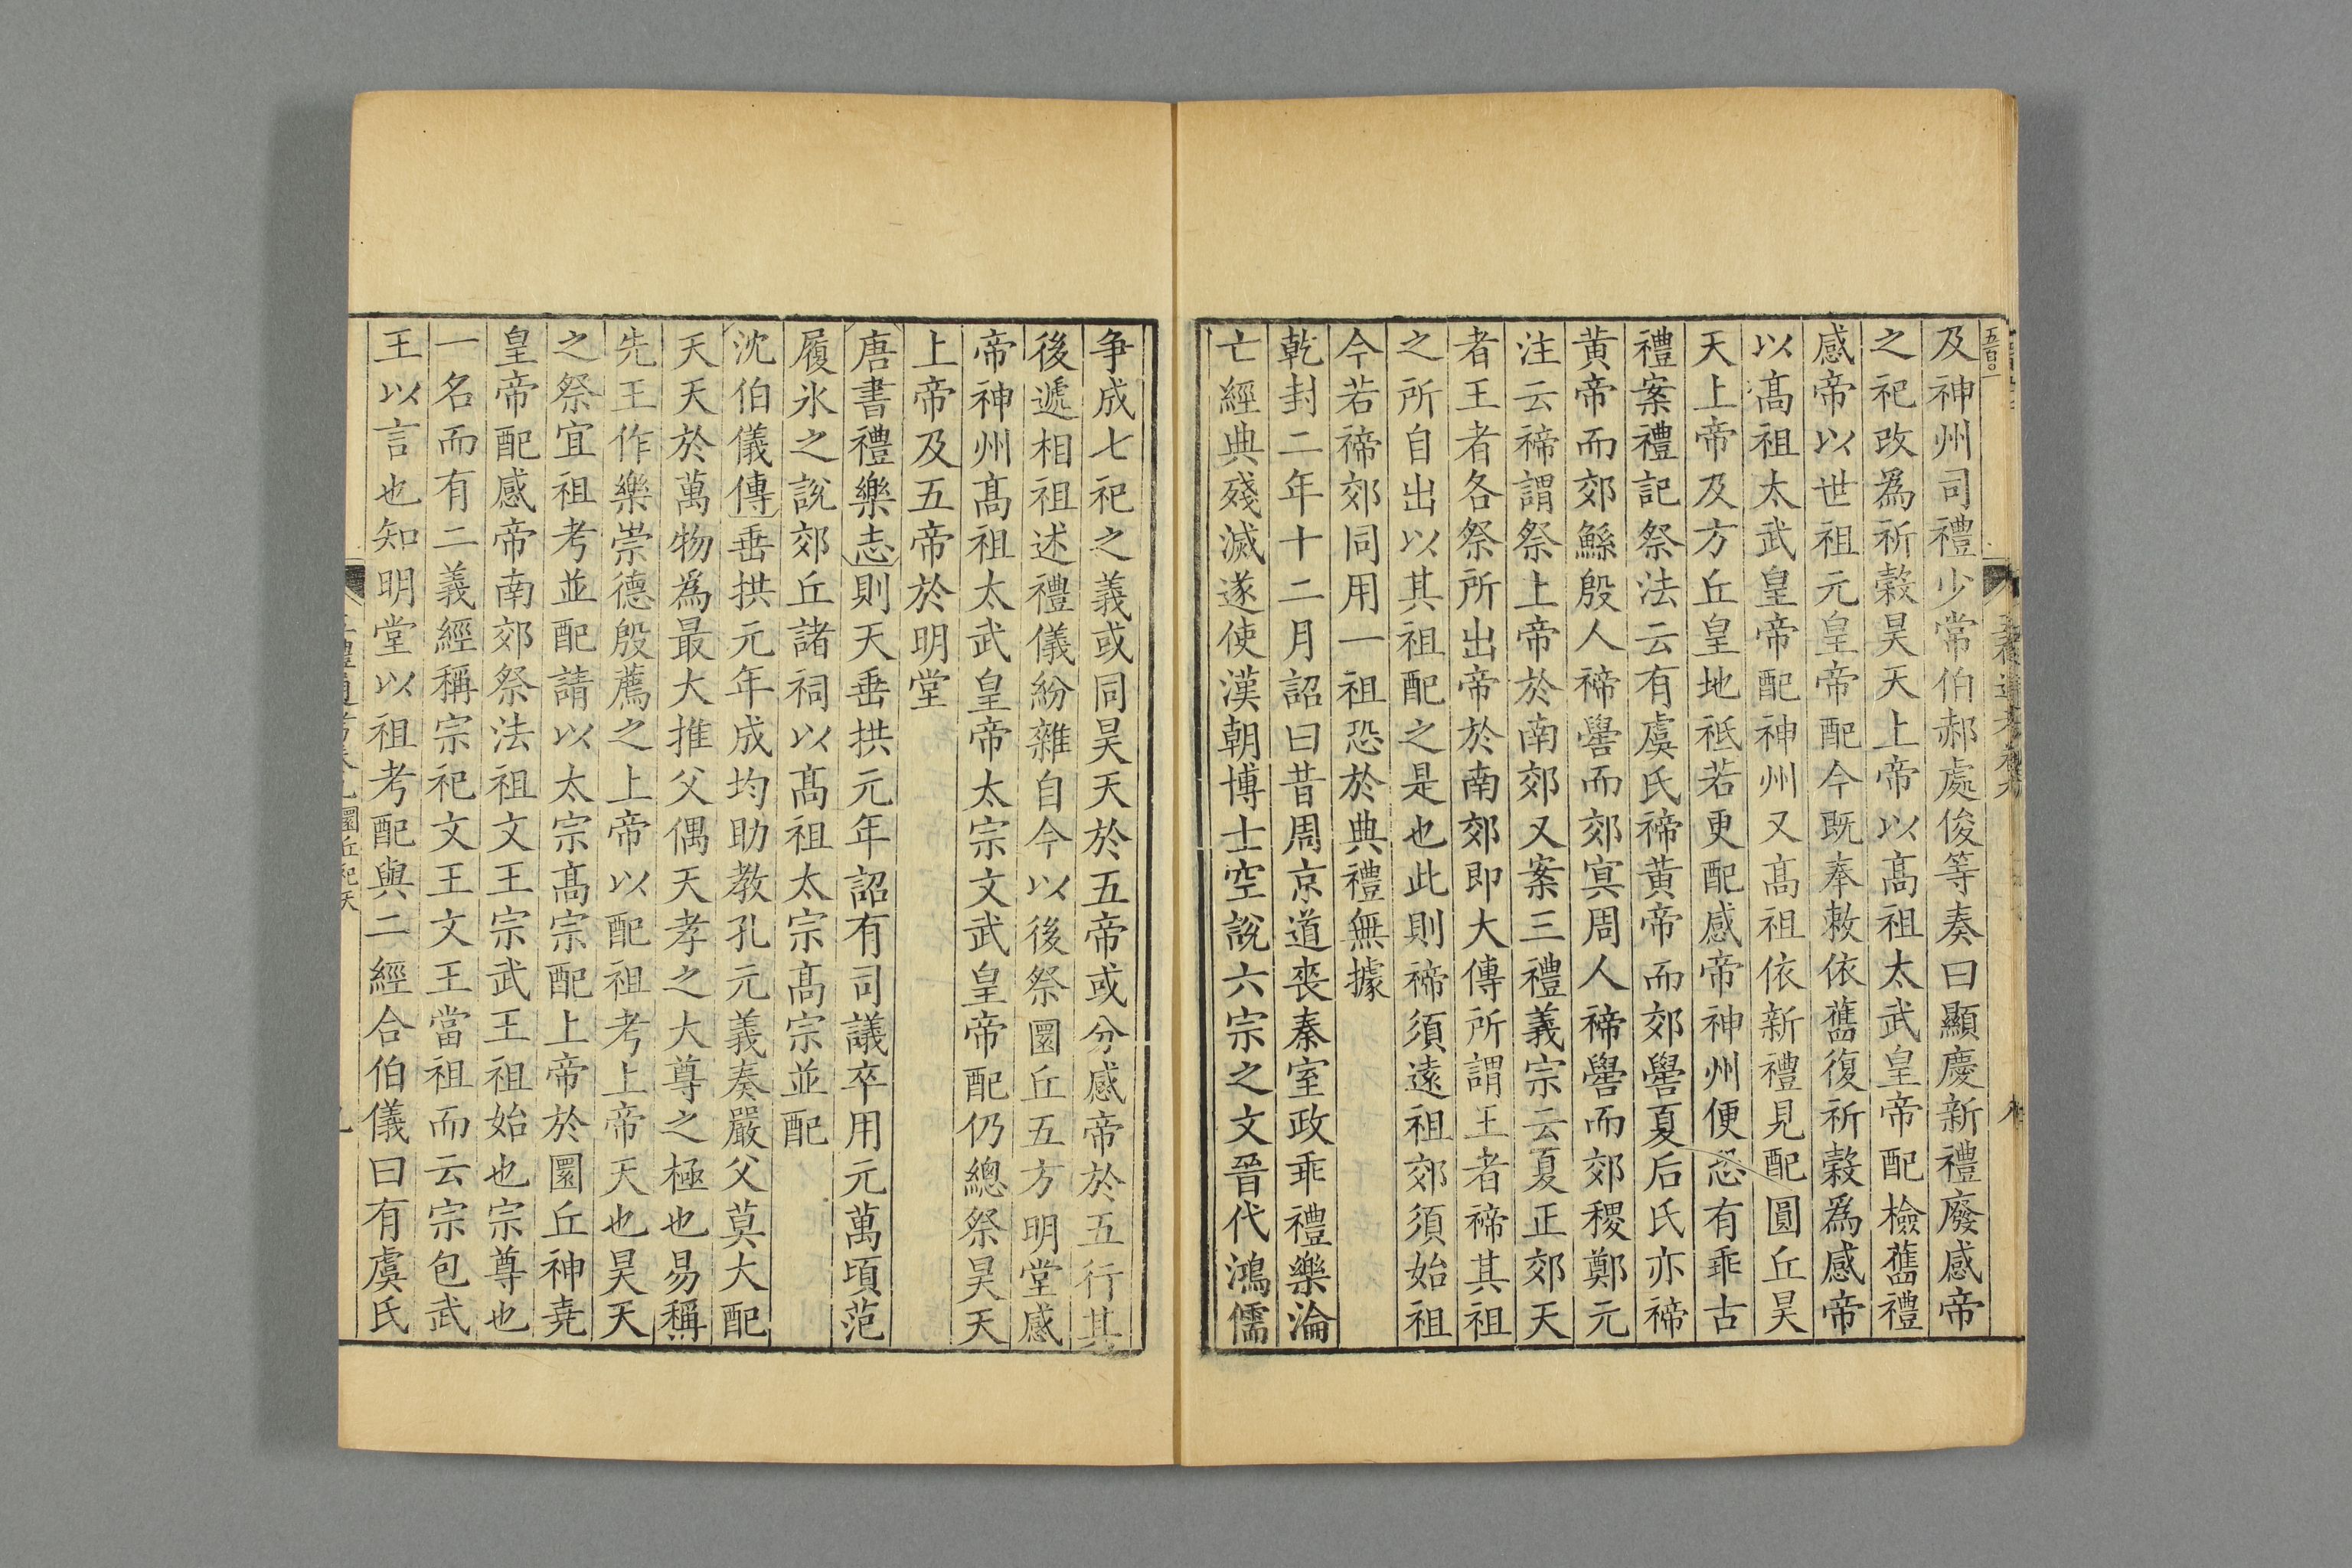 五百〇一
及神州司禮少常伯郝處俊等奏曰顯慶新禮廢感帝
之祀改爲祈糓昊天上帝以髙祖太武皇帝配檢舊禮
感帝以世祖元皇帝配今既奉敕依舊復祈糓爲感帝
以髙祖太武皇帝配神州又髙祖依新禮見配圓丘昊
天上帝及方丘皇地祗若更配感帝神州便恐有乖古
禮案禮記祭法云有虞氏禘黃帝而郊嚳夏后氏亦禘
黃帝而郊鯀殷人禘嚳而郊冥周人禘嚳而郊稷鄭元
注云禘謂祭上帝於南郊又案三禮義宗云夏正郊天
者王者各祭所出帝於南郊即大傳所謂王者禘其祖
之所自出以其祖配之是也此則禘須遠祖郊須始祖
今若禘郊同用一祖恐於典禮無據
乾封二年十二月詔曰昔周京道喪秦室政乖禮樂淪
亡經典殘滅遂使漢朝博士空說六宗之文晉代鴻儒
争成七祀之義或同昊天於五帝或分感帝於五行其
後遞相祖述禮儀紛雜自今以後祭圜丘五方明堂感
帝神州髙祖太武皇帝太宗文武皇帝配仍總祭昊天
上帝及五帝於明堂
唐書禮樂志則天垂拱元年詔有司議卒用元萬頃范
履氷之說郊丘諸祠以髙祖太宗髙宗並配
沈伯儀傳垂拱元年成均助教孔元義奏嚴父莫大配
天天於萬物爲最大推父偶天孝之大尊之極也易稱
先王作樂崇德殷薦之上帝以配祖考上帝天也昊天
之祭宜祖考並配請以太宗髙宗配上帝於圜丘神堯
皇帝配感帝南郊祭法祖文王宗武王祖始也宗尊也
一名而有二義經稱宗祀文王文王當祖而云宗包武
王以言也知明堂以祖考配與二經合伯儀曰有虞氏
圜丘祀天